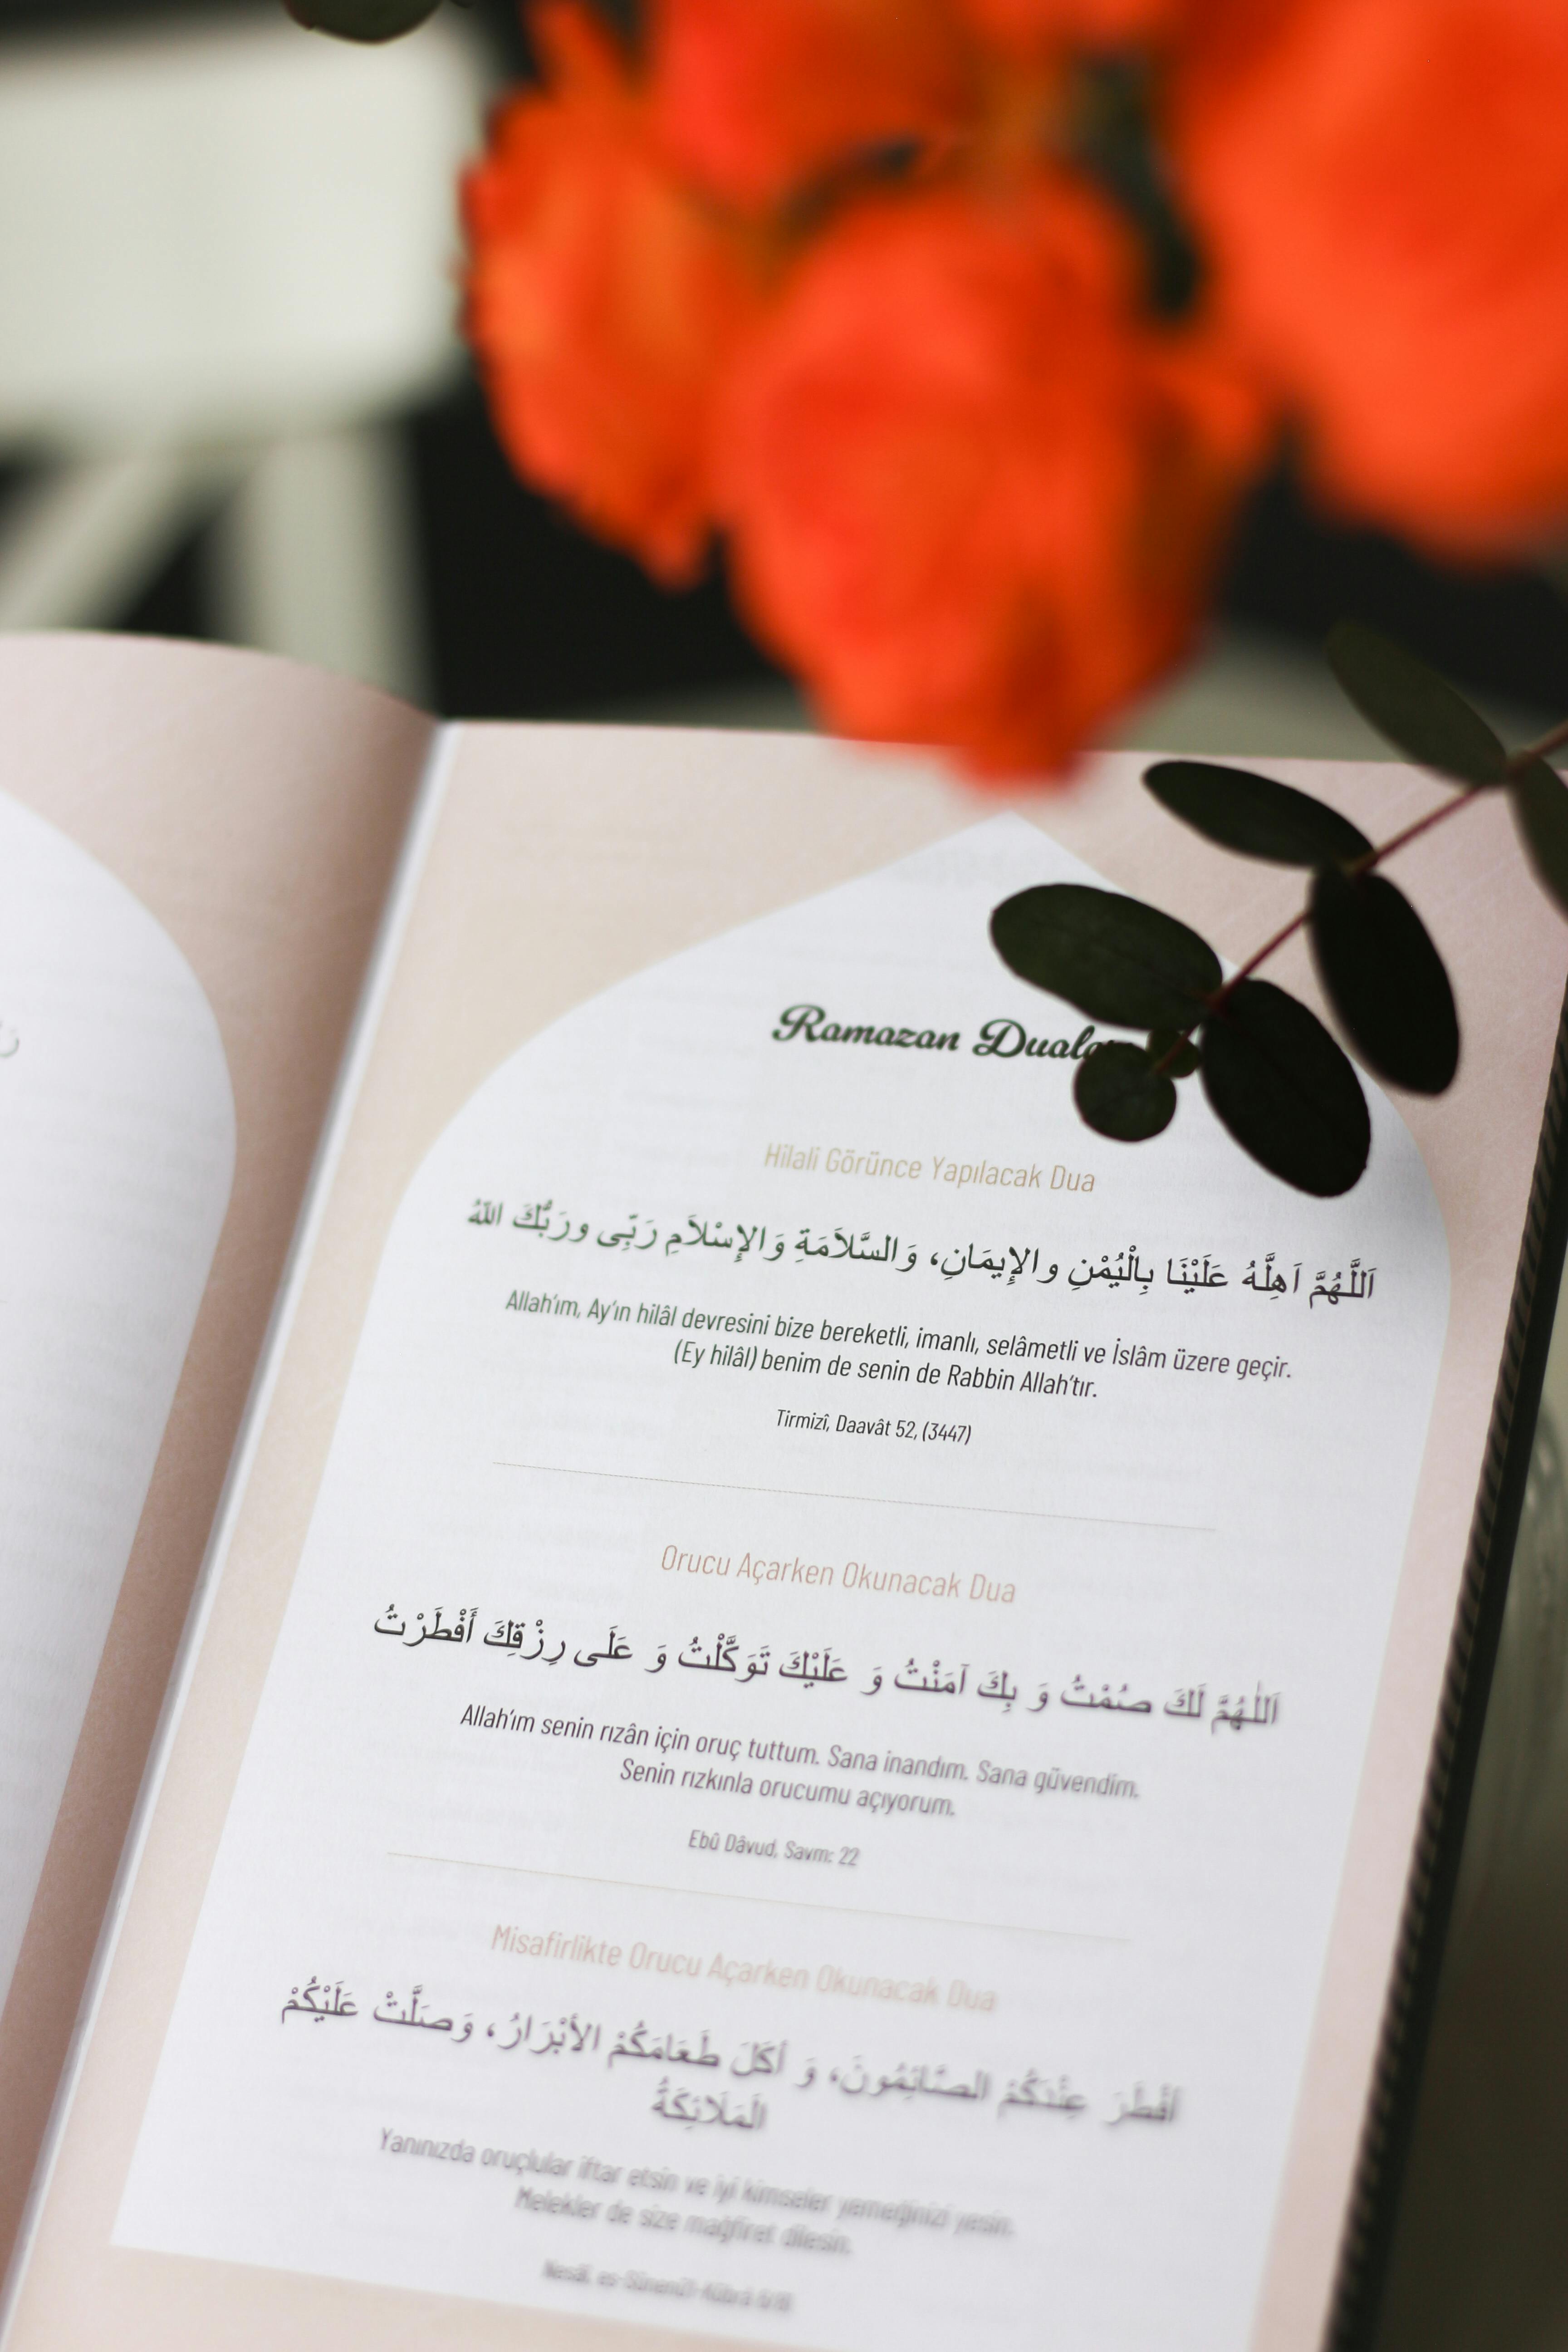 Ramazan
Hilali Görünce Yapılacak Dua
اَللَّهُمَّ اَهِلَّهُ عَلَيْنَا بِالْيُمْنِ والإِيمَانِ، وَالسَّلاَمَةِ وَالإِسْلاَمِ رَبِّى ورَبُّكَ اللّهُ
Allah’ım, Ay’ın hilâl devresini bize bereketli, imanlı, selâmetli ve İslâm üzere geçir.
(Ey hilâl) benim de senin de Rabbin Allah’tır.
Tirmizî, Daavât 52, (3447)
Orucu Açarken Okunacak Dua
اَللّٰهُمَّ لَكَ صُمْتُ وَ بِكَ آمَنْتُ وَ عَلَيْكَ تَوَكَّلْتُ وَ عَلَى رِزْقِكَ أَفْطَرْتُ
Allah’ım senin rızân için oruç tuttum. Sana inandım. Sana güvendim.
Senin rızkınla orucumu açıyorum.
Ebû Dâvud, Savm: 22
Misafirlikte Orucu Açarken Okunacak Dua
أفْطَرَ عِنْدَكُمْ الصَّائِمُونَ، وَ أكَلَ طَعَامَكُمْ الأبْرَارُ، وَصَلَّتْ عَلَيْكُمْ
المَلَائِكَةُ
Yanınızda oruçlular iftar etsin ve iyi kimseler yemeğinizi yesin.
Melekler de size mağfiret dilesin.